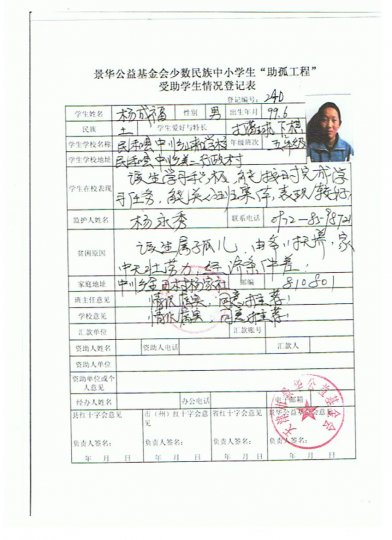 景华公益基金会少数民族中小学生“助孤工程”
受助学生情况登记表
登记编号：240
学生姓名 杨成福 性别 男 出生年月 99.6
民族 土 学生爱好与特长 打篮球 下棋
学生学校名称 民和县中川乡 学校 年级班次 五年级
学生学校地址 民和县中川乡 村
学生在校表现 该生学习 能 完成学
习任务，能关心 集体，表现较好
监护人姓名 杨永秀 联系电话 0972-85
贫困原因 该生属于孤儿，由爷 抚养，家
中无壮劳力，经济条件差
家庭地址 中川乡 村杨家社 邮编 810801
班主任意见 情况属实，同意推荐！
学校意见 情况属实，同意推荐！
汇款单位 汇款账号
资助人姓名 资助人电话 汇款人
资助人单位
资助单位或个人意见
经办人姓名 办公电话 电子邮箱
县红十字会意见 市（州）红十字会意见 省红十字会意见 景华公益基金会意见
负责人签名： 负责人签名： 负责人签名： 负责人签名：
年 月 日 年 月 日 年 月 日 年 月 日